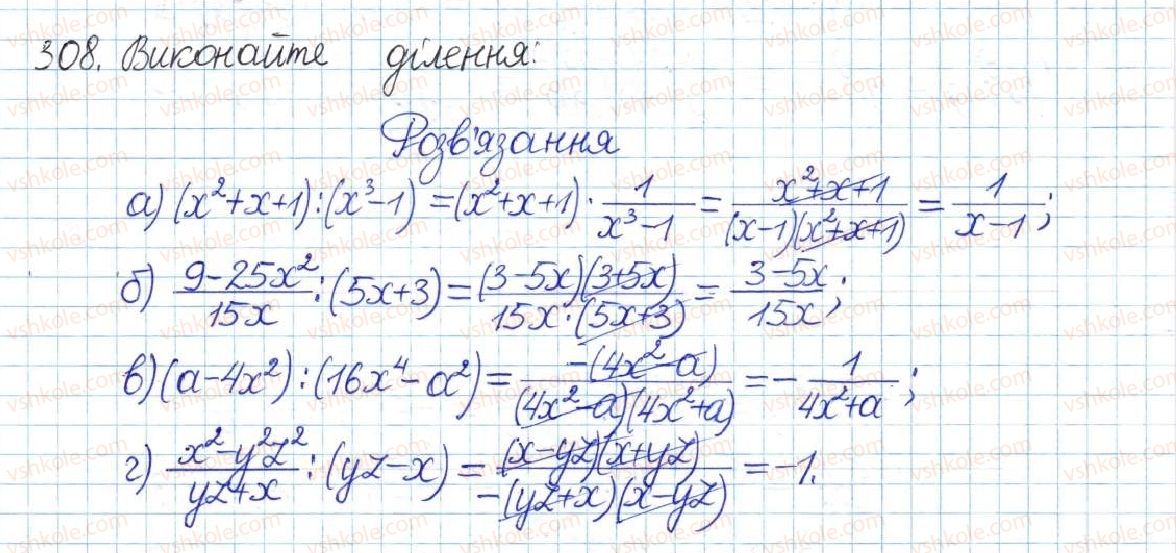 308. Виконайте ділення:
Розв'язання
а) (x²+x+1):(x³-1) = (x²+x+1)·1/(x³-1) = (x²+x+1)/((x-1)(x²+x+1)) = 1/(x-1);
б) (9-25x²)/(15x):(5x+3) = ((3-5x)(3+5x))/(15x·(5x+3)) = (3-5x)/(15x);
в) (a-4x²):(16x⁴-a²) = (-(4x²-a))/((4x²-a)(4x²+a)) = -1/(4x²+a);
г) (x²-y²z²)/(yz+x):(yz-x) = ((x-yz)(x+yz))/(-(yz+x)(x-yz)) = -1.
vshkole.com